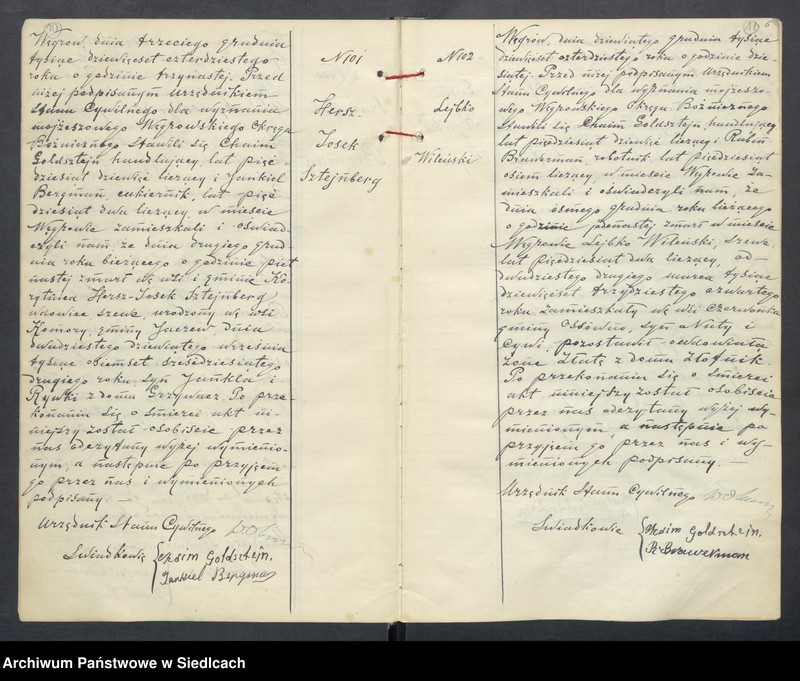 Węgrów, dnia trzeciego grudnia
tysiąc dziewięćset czterdziestego
roku o godzinie trzynastej. Przed
niżej podpisanym Urzędnikiem
Stanu Cywilnego dla wyznania
mojżeszowego Węgrowskiego Okręgu
Bóżnicznego stawili się Chaim
Goldsztejn handlujący lat pięć-
dziesiąt dziewięć liczący i Jankiel
Bergman, cukiernik, lat pięć
dziesiąt dwa liczący, w mieście
Węgrowie zamieszkali i oświad-
czyli nam, że dnia drugiego grud
nia roku bieżącego o godzinie pięt
nastej zmarł we wsi i gminie Ko
rytnica Hersz-Josek Sztejnberg
wdowiec szewc, urodzony we wsi
Komory, gminy Jaczew dnia
dwudziestego dziewiątego września
tysiąc osiemset sześćdziesiątego
drugiego roku, syn Jankla i
Rywki z domu Grzywacz. Po prze-
konaniu się o śmierci akt ni-
niejszy został osobiście przez
nas odczytany wyżej wymienio-
nym, a następnie po przyjęciu
go przez nas i wymienionych
podpisany. —
Urzędnik Stanu Cywilnego
Świadkowie
Chaim Goldschtejn.
Jankiel Bergman
N101
Hersz.
Josek
Sztejnberg
N102
Lejbko
Wileński
Węgrów, dnia dziewiątego grudnia tysiąc
dziewięćset czterdziestego roku o godzinie dzie-
siątej. Przed niżej podpisanym Urzędnikiem
Stanu Cywilnego dla wyznania mojżeszo-
wego Węgrowskiego Okręgu Bóżnicznego
stawili się Chaim Goldsztejn, handlujący
lat pięćdziesiąt dziewięć liczący i Rubin
Brawerman, robotnik lat pięćdziesiąt
osiem liczący, w mieście Węgrowie za-
mieszkali i oświadczyli nam, że
dnia ósmego grudnia roku bieżącego
o godzinie jedenastej zmarł w mieście
Węgrowie Lejbko Wileński, szewc.
lat pięćdziesiąt dwa liczący, od-
dwudziestego drugiego marca tysiąc
dziewięćset trzydziestego czwartego
roku zamieszkały we wsi Czerwonka
gminy Ossówno, syn Nuty i
Cywi, pozostawił owdowiałą
żonę Złatę z domu Złotnik.
Po przekonaniu się o śmierci
akt niniejszy został osobiście
przez nas odczytany wyżej wy-
mienionym, a następnie po
przyjęciu go przez nas i wy-
mienionych podpisany. —
Urzędnik Stanu Cywilnego
Świadkowie
Chaim Goldschtejn.
R. Brawerman
Archiwum Państwowe w Siedlcach